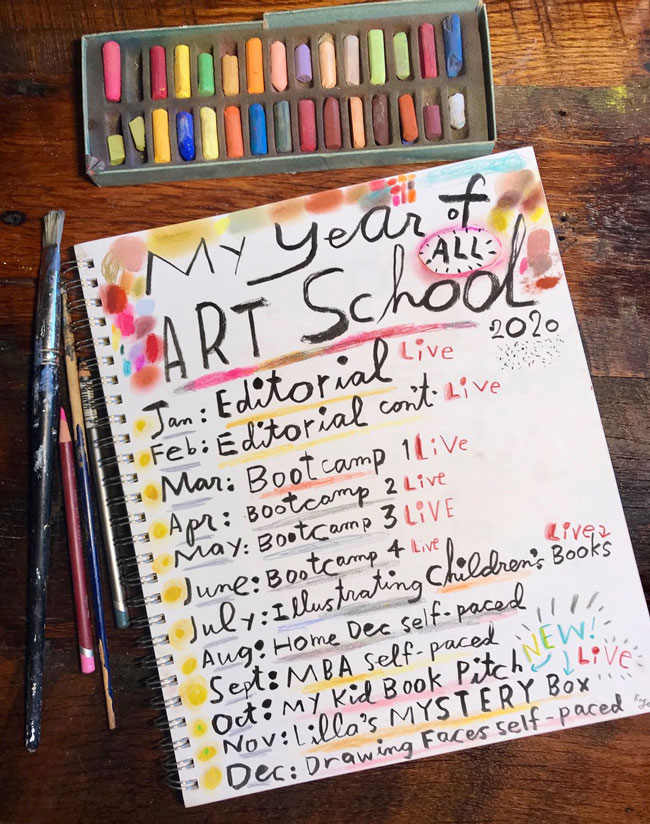 My Year of
ALL
ART School
2020
Jan: Editorial Live
Feb: Editorial con't. Live
Mar: Bootcamp 1 Live
Apr: Bootcamp 2 Live
May: Bootcamp 3 LiVE
June: Bootcamp 4 Live
Live
July: Illustrating Children's Books
Aug: Home Dec self-paced
Sept: MBA self-paced
NEW!
Oct: My Kid Book Pitch LiVE
Nov: Lilla's MYSTERY Box
Dec: Drawing Faces self-paced